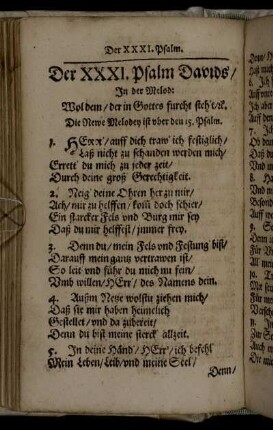 Der XXXI. Psalm.
Der XXXI. Psalm Davids/
In der Melod:
Wol dem/ der in Gottes furcht steh't/ꝛc.
Die Newe Melodey ist vber den 15. Psalm.
1. HErr/ auff dich traw' ich festiglich/
Laß nicht zu schanden werden mich/
Errett' du mich zu jeder zeit/
Durch deine groß Gerechtigkeit.
2. Neig' deine Ohren her zu mir/
Ach/ mir zu helffen/ kom̃ doch schier/
Ein starcker Fels vnd Burg mir sey
Daß du mir helffest/ immer frey.
3. Denn du/ mein Fels vnd Festung bist/
Darauff mein gantz vertrawen ist/
So leit vnd führ du mich nu fein/
Vmb willen/ HErr/ des Namens dein.
4. Außm Netze wolstu ziehen mich/
Daß sie mir haben heimelich
Gestellet/ vnd da zubereit/
Denn du bist meine sterck' allzeit.
5. In deine Händ'/ HErr/ ich befehl
Mein Leben/ Leib/ vnd meine Seel/
Denn/